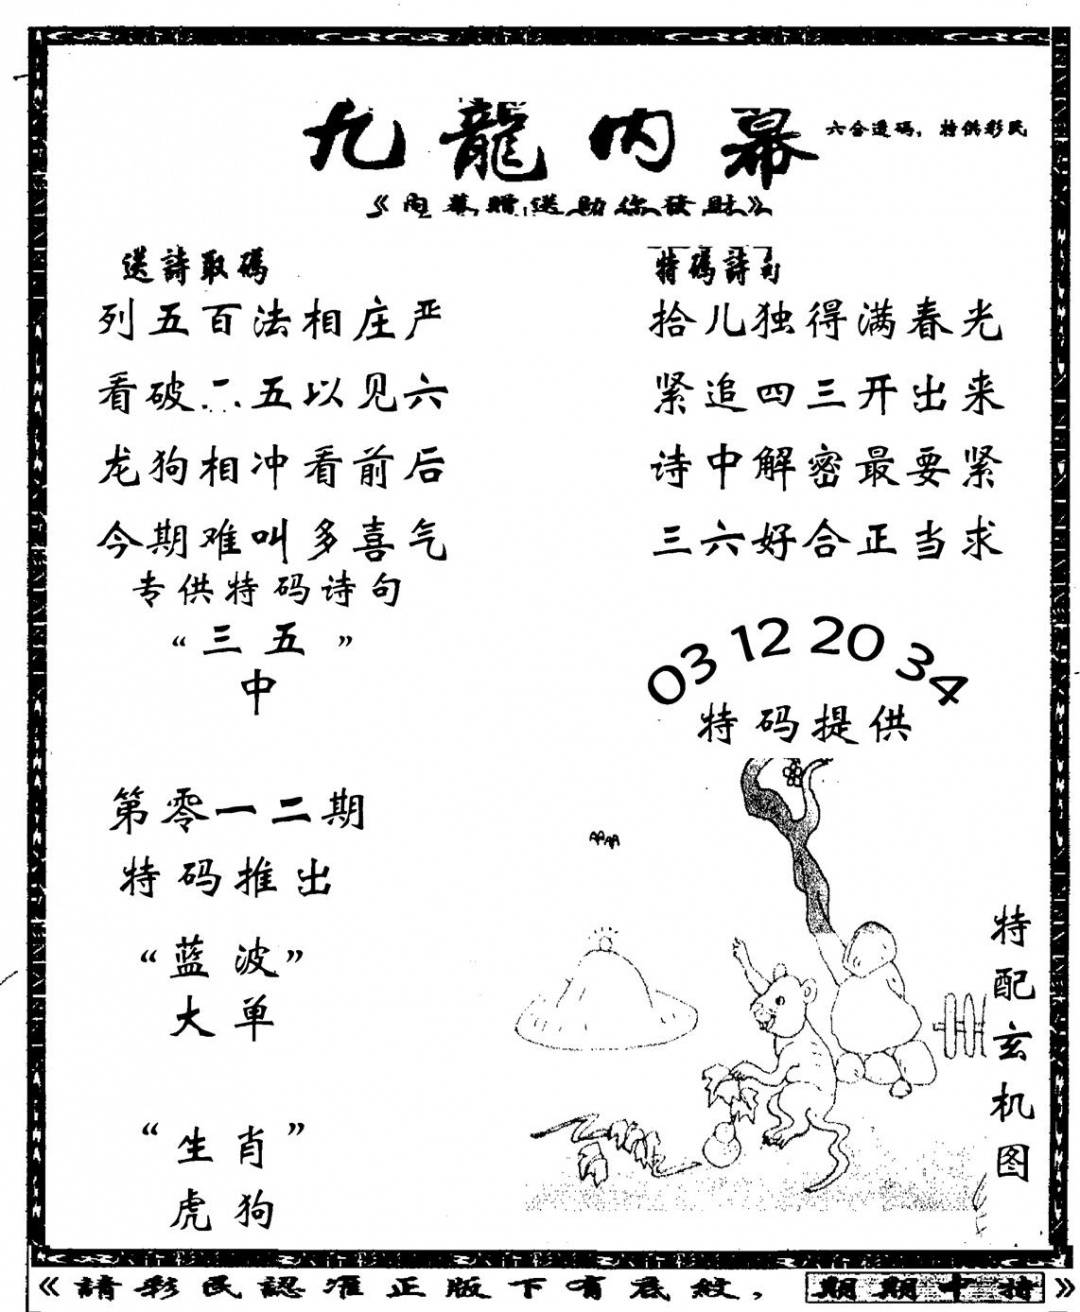 九龍内幕
六合透码，特供彩民
《内幕赠送助你發财》
送詩取碼
列五百法相庄严
看破二五以见六
龙狗相冲看前后
今期难叫多喜气
专供特码诗句
“三五”
中
第零一二期
特码推出
“蓝波”
大单
“生肖”
虎狗
特碼詩句
拾儿独得满春光
紧追四三开出来
诗中解密最要紧
三六好合正当求
03 12 20 34
特码提供
特配玄机图
《請彩民認准正版下有底紋，期期中特》